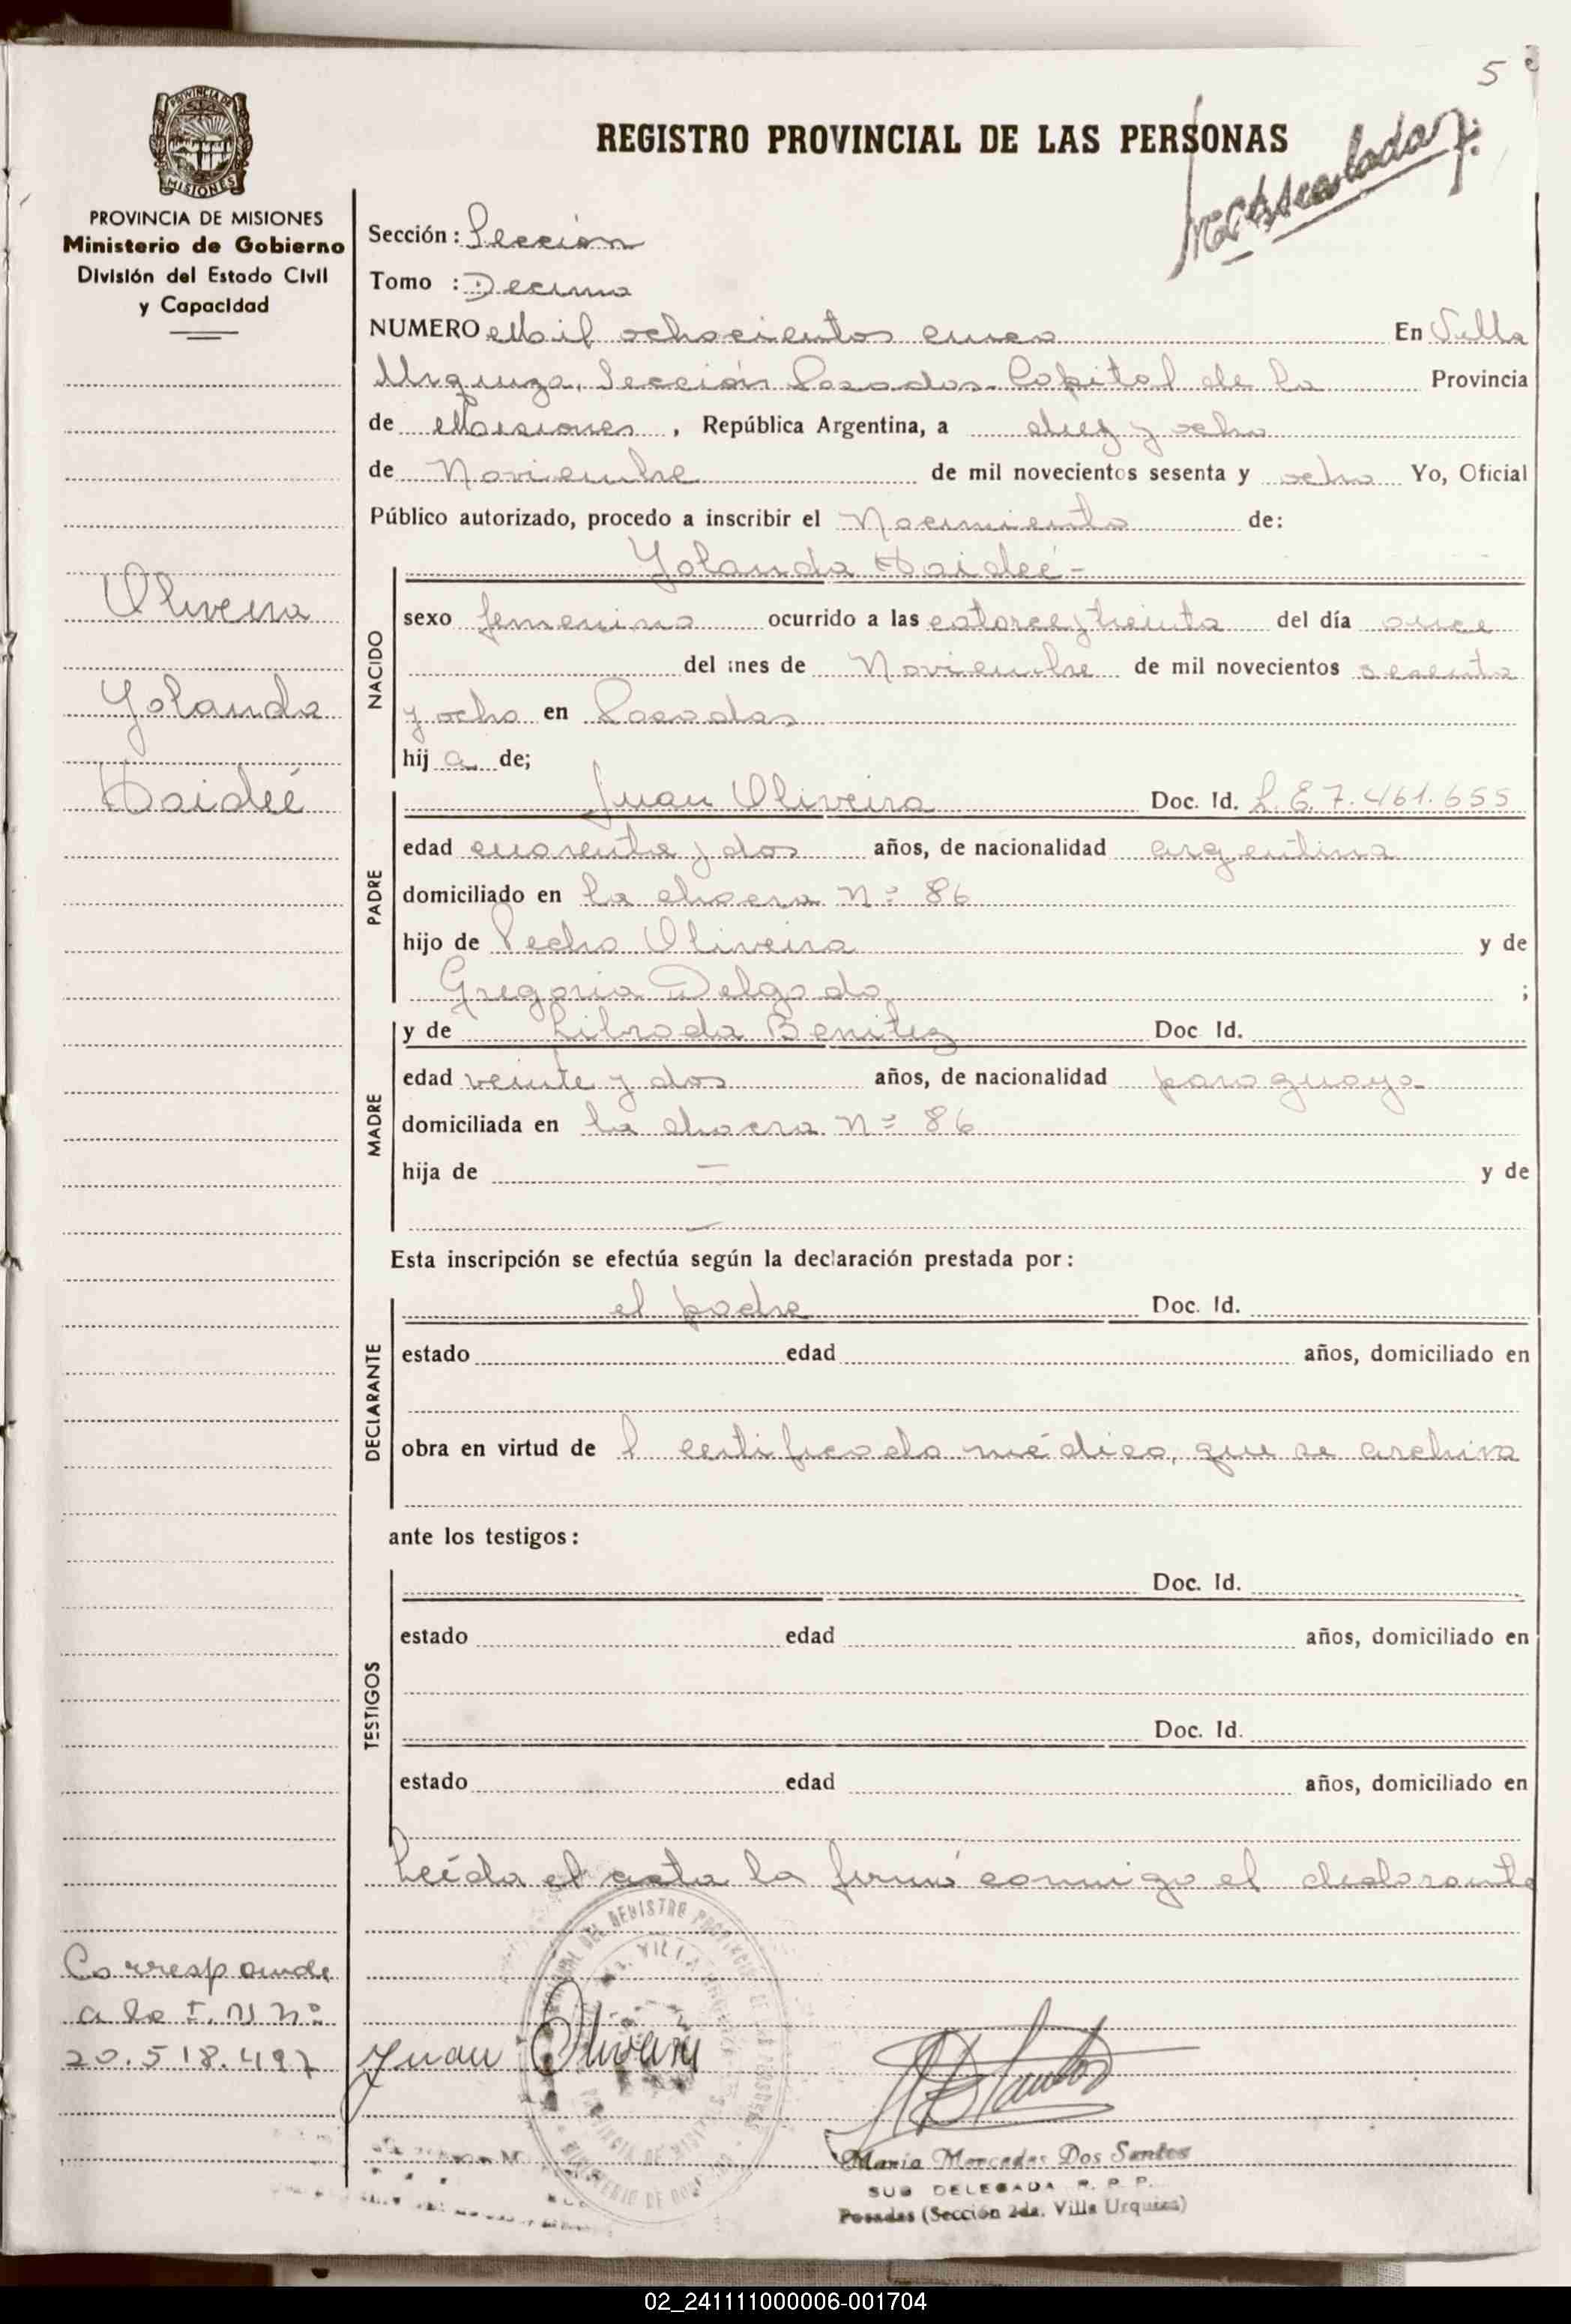 5
REGISTRO PROVINCIAL DE LAS PERSONAS
PROVINCIA DE
MISIONES
PROVINCIA DE MISIONES
Ministerio de Gobierno
División del Estado Civil
y Capacidad
Oliveira
Yolanda
Haideé
Corresponde
a la I. N nº
20.518.497
Sección: Sección
Tomo : Decimo
NUMERO Mil ochocientos cinco En Villa
Urquiza, Sección Posadas. Capital de la Provincia
de Misiones, República Argentina, a diez y ocho
de Noviembre de mil novecientos sesenta y ocho Yo, Oficial
Público autorizado, procedo a inscribir el Nacimiento de:
NACIDO
Yolanda Haideé-
sexo femenino ocurrido a las catorce y treinta del día once
del mes de Noviembre de mil novecientos sesenta
y ocho en Posadas
hij a de;
PADRE
Juan Oliveira Doc. Id. L.E.7.461.655
edad cuarenta y dos años, de nacionalidad argentina
domiciliado en la chacra Nº 86
hijo de Pedro Oliveira y de
Gregoria Delgado ;
MADRE
y de Librada Benitez Doc Id.
edad veinte y dos años, de nacionalidad paraguaya
domiciliada en la chacra Nº 86
hija de — y de
—
Esta inscripción se efectúa según la declaración prestada por:
DECLARANTE
el padre Doc. Id.
estado edad años, domiciliado en
obra en virtud de l certificado médico, que se archiva
ante los testigos:
TESTIGOS
Doc. Id.
estado edad años, domiciliado en
Doc. Id.
estado edad años, domiciliado en
Leída el acta la firmó conmigo el declarante
Juan Oliveira
Maria Mercedes Dos Santos
SUB DELEGADA R. P. P.
Posadas (Sección 2da. Villa Urquiza)
02_241111000006-001704